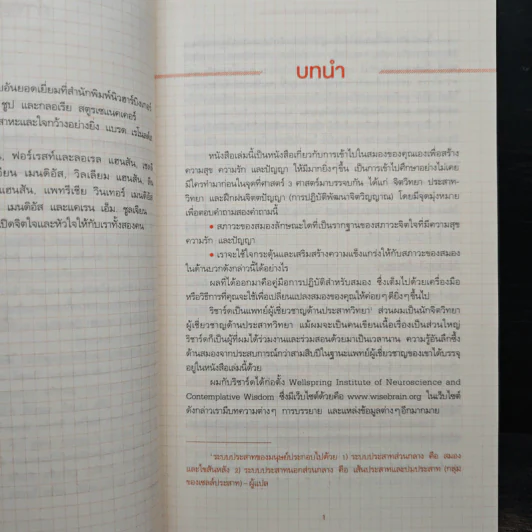 อันยอดเยี่ยมที่สำนักพิมพ์นิวฮาร์บิงเกอร์
ซูป และกลอเรีย สตูรเซนแนคเคอร์
และใจกว้างอย่างยิ่ง แบรด เรโนลด์ส
ฟอร์เรสท์และลอเรล แฮนสัน,
เมนดิอัส, วิลเลียม แฮนสัน,
แฮนสัน, แพทรีเซีย วินเทอร์ เมนดิอัส
เมนดิอัส และแคเรน เอ็ม. ชูลเจียน
เปิดจิตใจและหัวใจให้กับเราทั้งสองคน
บทนำ
หนังสือเล่มนี้เป็นหนังสือเกี่ยวกับการเข้าไปในสมองของคุณเองเพื่อสร้าง
ความสุข ความรัก และปัญญา ให้มีมากยิ่งๆขึ้น เป็นการเข้าไปศึกษาอย่างไม่เคย
มีใครทำมาก่อนในจุดที่ศาสตร์ 3 ศาสตร์มาบรรจบกัน ได้แก่ จิตวิทยา ประสาท-
วิทยา และฝึกฝนจิตตปัญญา (การปฏิบัติพัฒนาจิตวิญญาณ) โดยมีจุดมุ่งหมาย
เพื่อตอบคำถามสองคำถามนี้
• สภาวะของสมองลักษณะใดที่เป็นรากฐานของสภาวะจิตใจที่มีความสุข
ความรัก และปัญญา
• เราจะใช้ใจกระตุ้นและเสริมสร้างความแข็งแกร่งให้กับสภาวะของสมอง
ในด้านบวกดังกล่าวนี้ได้อย่างไร
ผลที่ได้ออกมาคือคู่มือการปฏิบัติสำหรับสมอง ซึ่งเต็มไปด้วยเครื่องมือ
หรือวิธีการที่คุณจะใช้เพื่อเปลี่ยนแปลงสมองของคุณให้ค่อยๆดียิ่งๆขึ้นไป
ริชาร์ดเป็นแพทย์ผู้เชี่ยวชาญด้านประสาทวิทยา¹ ส่วนผมเป็นนักจิตวิทยา
ผู้เชี่ยวชาญด้านประสาทวิทยา แม้ผมจะเป็นคนเขียนเนื้อเรื่องเป็นส่วนใหญ่
ริชาร์ดก็เป็นผู้ที่ผมได้ร่วมงานและร่วมสอนด้วยมาเป็นเวลานาน ความรู้อันลึกซึ้ง
ด้านสมองจากประสบการณ์กว่าสามสิบปีในฐานะแพทย์ผู้เชี่ยวชาญของเขาได้บรรจุ
อยู่ในหนังสือเล่มนี้ด้วย
ผมกับริชาร์ดได้ก่อตั้ง Wellspring Institute of Neuroscience and
Contemplative Wisdom ซึ่งมีเว็บไซต์ด้วยคือ www.wisebrain.org ในเว็บไซต์
ดังกล่าวเรามีบทความต่างๆ การบรรยาย และแหล่งข้อมูลต่างๆอีกมากมาย
¹ระบบประสาทของมนุษย์ประกอบไปด้วย 1) ระบบประสาทส่วนกลาง คือ สมอง
และไขสันหลัง 2) ระบบประสาทนอกส่วนกลาง คือ เส้นประสาทและปมประสาท (กลุ่ม
ของเซลล์ประสาท) – ผู้แปล
1